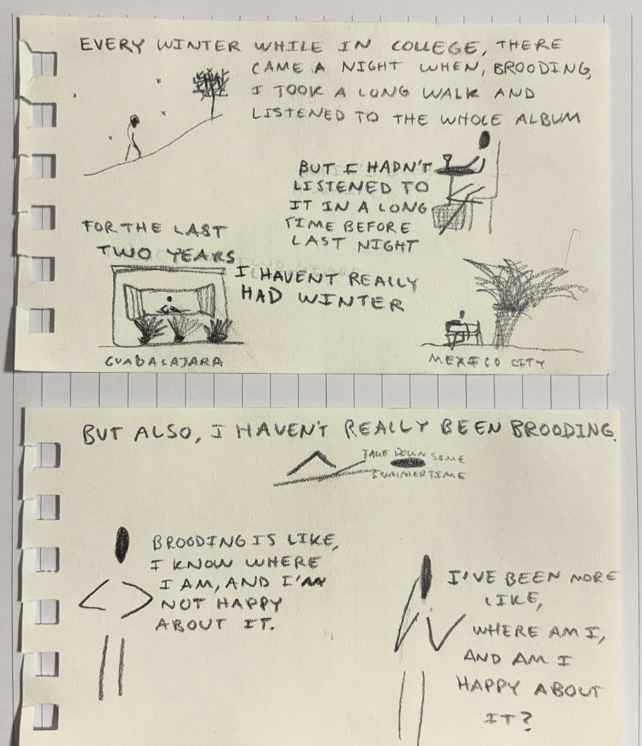 EVERY WINTER WHILE IN COLLEGE, THERE
CAME A NIGHT WHEN, BROODING,
I TOOK A LONG WALK AND
LISTENED TO THE WHOLE ALBUM
BUT I HADN'T
LISTENED TO
IT IN A LONG
TIME BEFORE
LAST NIGHT
FOR THE LAST
TWO YEARS
I HAVEN'T REALLY
HAD WINTER
GUADALAJARA
MEXICO CITY
BUT ALSO, I HAVEN'T REALLY BEEN BROODING.
TAKE DOWN SOME
SUMMERTIME
BROODING IS LIKE,
I KNOW WHERE
I AM, AND I'M
NOT HAPPY
ABOUT IT.
I'VE BEEN MORE
LIKE,
WHERE AM I,
AND AM I
HAPPY ABOUT
IT?